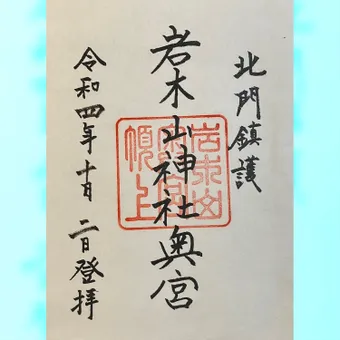 北門鎮護
岩木山神社奥宮
令和四年十月二日登拝
岩木山
頂上